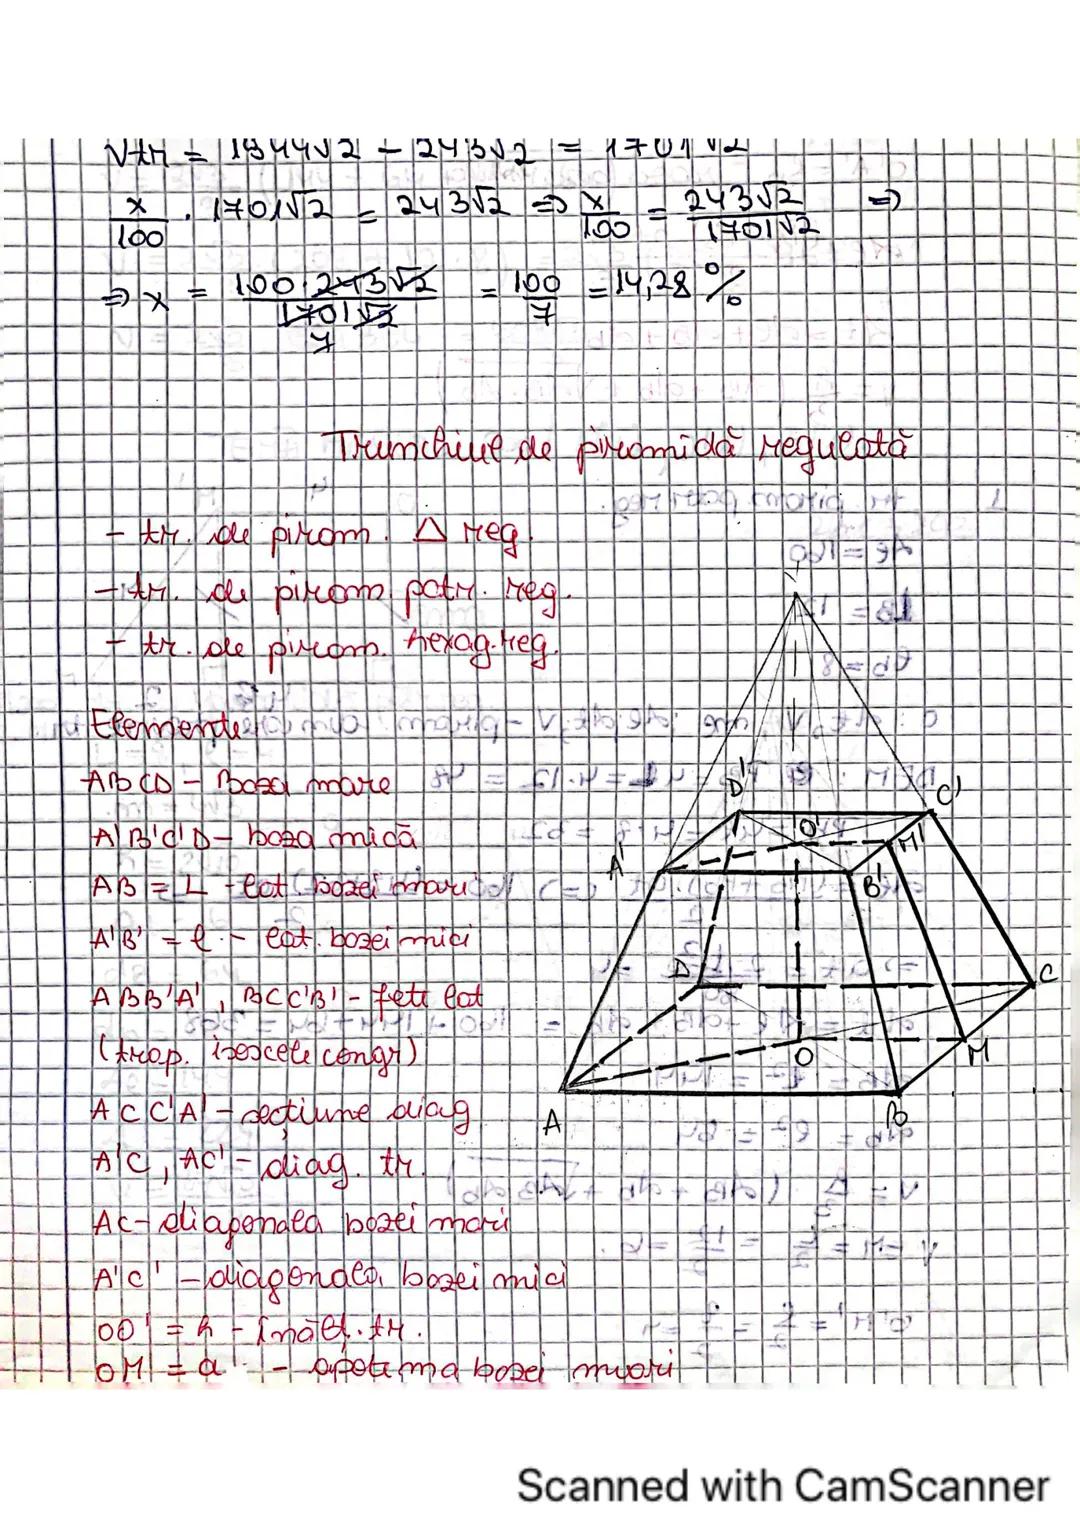 Vtr = 1944√2 - 243√2 = 1701√2
x/100 · 1701√2 = 243√2 => x/100 = 243√2/1701√2 =>
=> x = 100·243√2/1701√2 = 100/7 = 14,28 %
7
Trunchiul de piramidă regulată
- tr. de piram. △ reg.
- tr. de piram. patr. reg.
- tr. de piram. hexag. reg.
Elemente
ABCD - Baza mare
A'B'C'D - baza mică
AB = L - lat bazei mari
A'B' = l - lat. bazei mici
ABB'A', BCC'B' - fețe lat
(trap. isoscele congr)
ACC'A' - secțiune diag
A'C, AC' - diag. tr.
AC - diagonala bazei mari
A'C' - diagonala bazei mici
OO' = h - înălț. tr.
OM = a - apotema bazei mari
D' C'
O' M'
A' B'
D C
O M
A B
Scanned with CamScanner